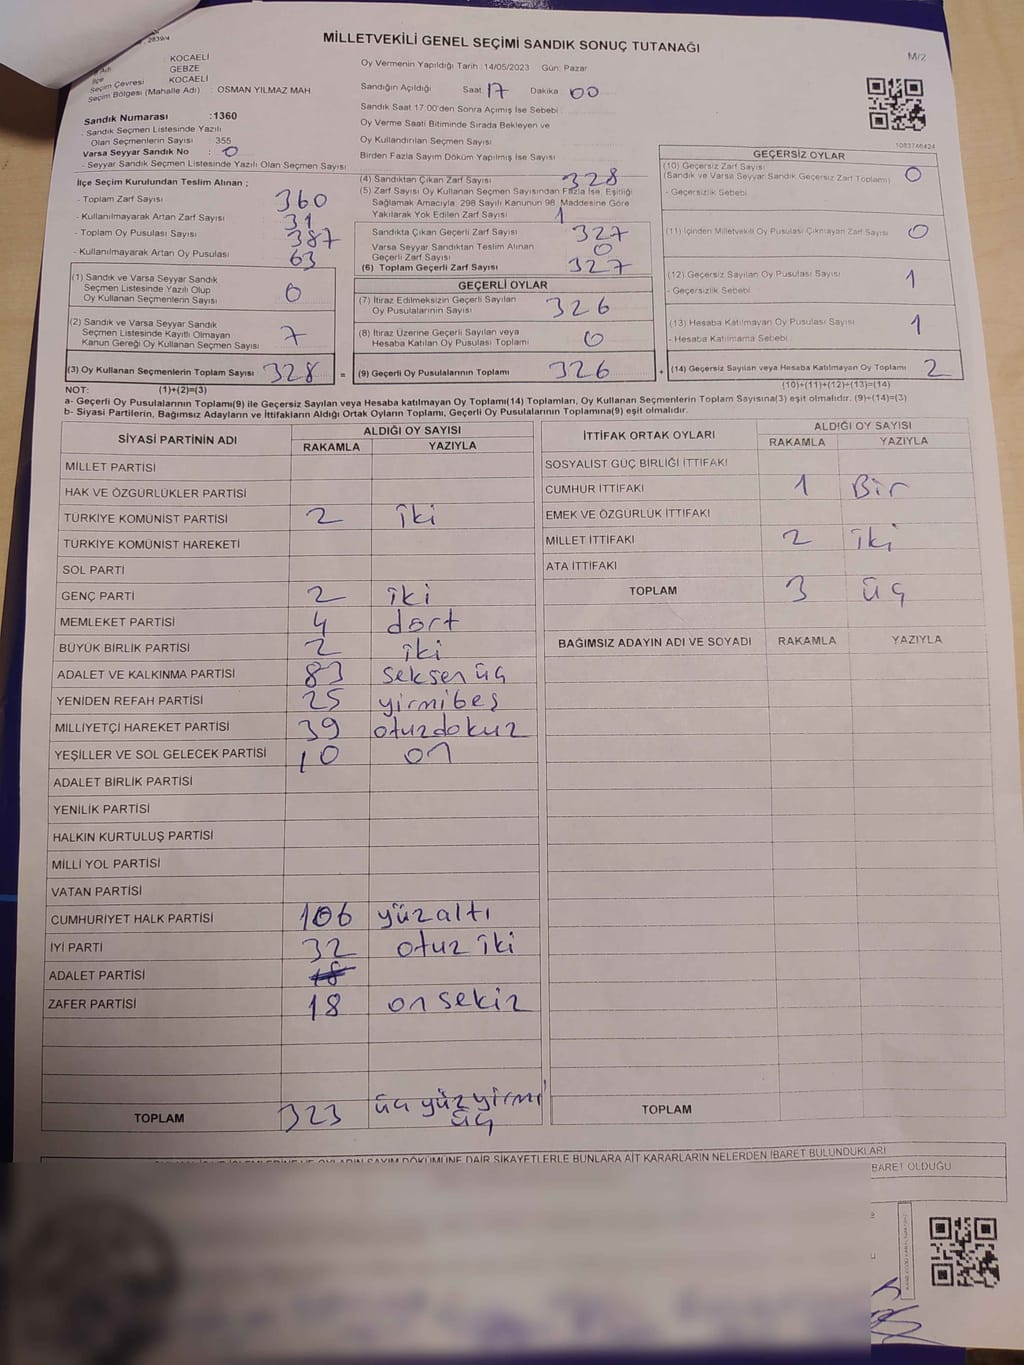 2839/4
MİLLETVEKİLİ GENEL SEÇİMİ SANDIK SONUÇ TUTANAĞI
M/2
: KOCAELİ
Adı : GEBZE
İlçe
Seçim Çevresi : KOCAELİ
Seçim Bölgesi (Mahalle Adı) : OSMAN YILMAZ MAH
Sandık Numarası :1360
- Sandık Seçmen Listesinde Yazılı
Olan Seçmenlerin Sayısı 355
Varsa Seyyar Sandık No : 0
- Seyyar Sandık Seçmen Listesinde Yazılı Olan Seçmen Sayısı
Oy Vermenin Yapıldığı Tarih : 14/05/2023 Gün: Pazar
Sandığın Açıldığı Saat 17 Dakika 00
Sandık Saat 17:00'den Sonra Açılmış İse Sebebi
Oy Verme Saati Bitiminde Sırada Bekleyen ve
Oy Kullandırılan Seçmen Sayısı
Birden Fazla Sayım Döküm Yapılmış İse Sayısı
1083746424
İlçe Seçim Kurulundan Teslim Alınan ;
- Toplam Zarf Sayısı 360
- Kullanılmayarak Artan Zarf Sayısı 31
- Toplam Oy Pusulası Sayısı 387
- Kullanılmayarak Artan Oy Pusulası 63
(1) Sandık ve Varsa Seyyar Sandık
Seçmen Listesinde Yazılı Olup
Oy Kullanan Seçmenlerin Sayısı 0
(2) Sandık ve Varsa Seyyar Sandık
Seçmen Listesinde Kayıtlı Olmayan
Kanun Gereği Oy Kullanan Seçmen Sayısı 7
(3) Oy Kullanan Seçmenlerin Toplam Sayısı 328 =
(4) Sandıktan Çıkan Zarf Sayısı 328
(5) Zarf Sayısı Oy Kullanan Seçmen Sayısından Fazla İse, Eşitliği
Sağlamak Amacıyla, 298 Sayılı Kanunun 98. Maddesine Göre
Yakılarak Yok Edilen Zarf Sayısı 1
Sandıkta Çıkan Geçerli Zarf Sayısı 327
Varsa Seyyar Sandıktan Teslim Alınan
Geçerli Zarf Sayısı 0
(6) Toplam Geçerli Zarf Sayısı 327
GEÇERLİ OYLAR
(7) İtiraz Edilmeksizin Geçerli Sayılan
Oy Pusulalarının Sayısı 326
(8) İtiraz Üzerine Geçerli Sayılan veya
Hesaba Katılan Oy Pusulası Toplamı 0
(9) Geçerli Oy Pusulalarının Toplamı 326 +
GEÇERSİZ OYLAR
(10) Geçersiz Zarf Sayısı
(Sandık ve Varsa Seyyar Sandık Geçersiz Zarf Toplamı) 0
- Geçersizlik Sebebi
(11) İçinden Milletvekili Oy Pusulası Çıkmayan Zarf Sayısı 0
(12) Geçersiz Sayılan Oy Pusulası Sayısı 1
- Geçersizlik Sebebi
(13) Hesaba Katılmayan Oy Pusulası Sayısı 1
- Hesaba Katılmama Sebebi
(14) Geçersiz Sayılan veya Hesaba Katılmayan Oy Toplamı 2
NOT: (1)+(2)=(3) (10)+(11)+(12)+(13)=(14)
a- Geçerli Oy Pusulalarının Toplamı(9) ile Geçersiz Sayılan veya Hesaba katılmayan Oy Toplamı(14) Toplamları, Oy Kullanan Seçmenlerin Toplam Sayısına(3) eşit olmalıdır. (9)+(14)=(3)
b- Siyasi Partilerin, Bağımsız Adayların ve İttifakların Aldığı Ortak Oyların Toplamı, Geçerli Oy Pusulalarının Toplamına(9) eşit olmalıdır.
SİYASİ PARTİNİN ADI ALDIĞI OY SAYISI
RAKAMLA YAZIYLA
MİLLET PARTİSİ
HAK VE ÖZGÜRLÜKLER PARTİSİ
TÜRKİYE KOMÜNİST PARTİSİ 2 iki
TÜRKİYE KOMÜNİST HAREKETİ
SOL PARTİ
GENÇ PARTİ 2 iki
MEMLEKET PARTİSİ 4 dört
BÜYÜK BİRLİK PARTİSİ 2 iki
ADALET VE KALKINMA PARTİSİ 83 seksen üç
YENİDEN REFAH PARTİSİ 25 yirmibeş
MİLLİYETÇİ HAREKET PARTİSİ 39 otuzdokuz
YEŞİLLER VE SOL GELECEK PARTİSİ 10 on
ADALET BİRLİK PARTİSİ
YENİLİK PARTİSİ
HALKIN KURTULUŞ PARTİSİ
MİLLİ YOL PARTİSİ
VATAN PARTİSİ
CUMHURİYET HALK PARTİSİ 106 yüzaltı
İYİ PARTİ 32 otuz iki
ADALET PARTİSİ 18
ZAFER PARTİSİ 18 on sekiz
TOPLAM 323 üç yüz yirmi
üç
İTTİFAK ORTAK OYLARI ALDIĞI OY SAYISI
RAKAMLA YAZIYLA
SOSYALİST GÜÇ BİRLİĞİ İTTİFAKI
CUMHUR İTTİFAKI 1 Bir
EMEK VE ÖZGÜRLÜK İTTİFAKI
MİLLET İTTİFAKI 2 iki
ATA İTTİFAKI
TOPLAM 3 üç
BAĞIMSIZ ADAYIN ADI VE SOYADI RAKAMLA YAZIYLA
TOPLAM
DÖKÜMÜNE DAİR ŞİKAYETLERLE BUNLARA AİT KARARLARIN NELERDEN İBARET BULUNDUKLARI
BARET OLDUĞU